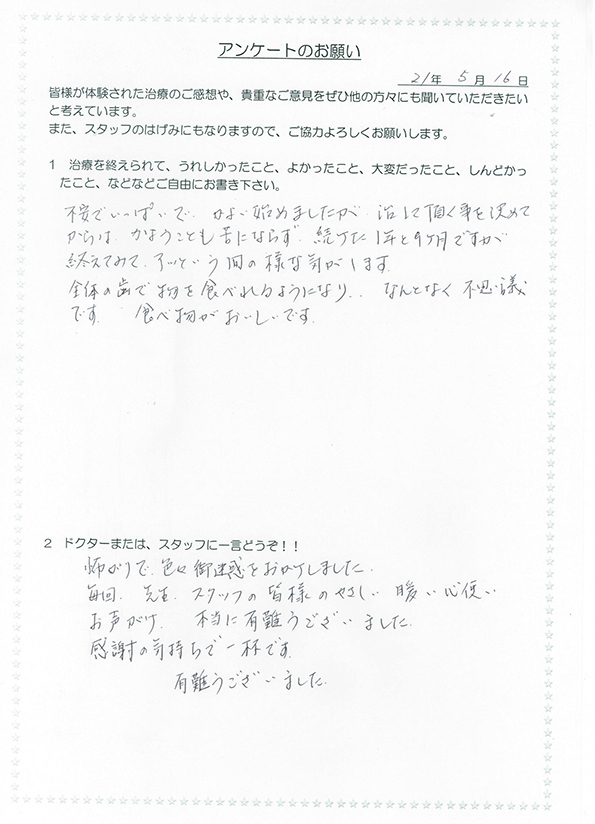 アンケートのお願い
21年 5月 16日
皆様が体験された治療のご感想や、貴重なご意見をぜひ他の方々にも聞いていただきたい
と考えています。
また、スタッフのはげみにもなりますので、ご協力よろしくお願いします。
1 治療を終えられて、うれしかったこと、よかったこと、大変だったこと、しんどかっ
たこと、などなどご自由にお書き下さい。
不安でいっぱいで かよい始めましたが 治して頂く事を決めて
からは かようことも苦にならず 続けた1年と9ヶ月ですが
終えてみて アッという間の様な気がします.
全体の歯で物を食べれるようになり.. なんとなく不思議
です. 食べ物がおいしいです.
2 ドクターまたは、スタッフに一言どうぞ!!
怖がりで 色々御迷惑をおかけしました.
毎回 先生 スタッフの皆様のやさしい 暖い心使い
お声がけ 本当に有難うございました.
感謝の気持ちで一杯です.
有難うございました.